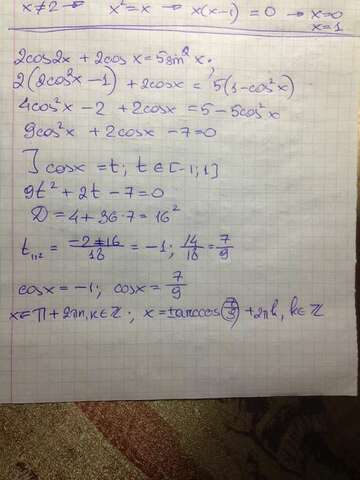 x≠2 ⇒ x²=x ⇒ x(x-1)=0 → x=0
x=1
2cos2x + 2cosx = 5sin²x;
2(2cos²x-1) + 2cosx = 5(1-cos²x)
4cos²x - 2 + 2cosx = 5 - 5cos²x
9cos²x + 2cosx - 7 = 0
] cosx = t; t∈[-1;1]
9t² + 2t - 7 = 0
D = 4 + 36·7 = 16²
t₁,₂ = (-2±16)/18 = -1; 14/18 = 7/9
cosx = -1; cosx = 7/9
x = π + 2πn, k∈ℤ; x = ±arccos(7/9) + 2πk, k∈ℤ